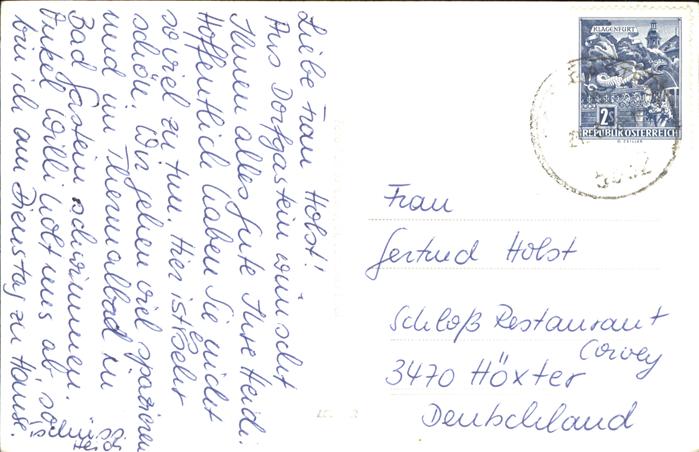 Liebe Frau Holst!
Aus Dorfgastein wünscht
Ihnen alles Gute Ihre Heidi.
Hoffentlich haben Sie nicht
soviel zu tun. Hier ist es sehr
schön. Wir gehen viel spazieren
und im Thermalbad in
Bad Gastein schwimmen.
Onkel Willi holt uns ab,
bin ich am Dienstag zu Hause.
KLAGENFURT
2S
REPUBLIK ÖSTERREICH
5632
Frau
Gertrud Holst
Schloß Restaurant
Corvey
3470 Höxter
Deutschland